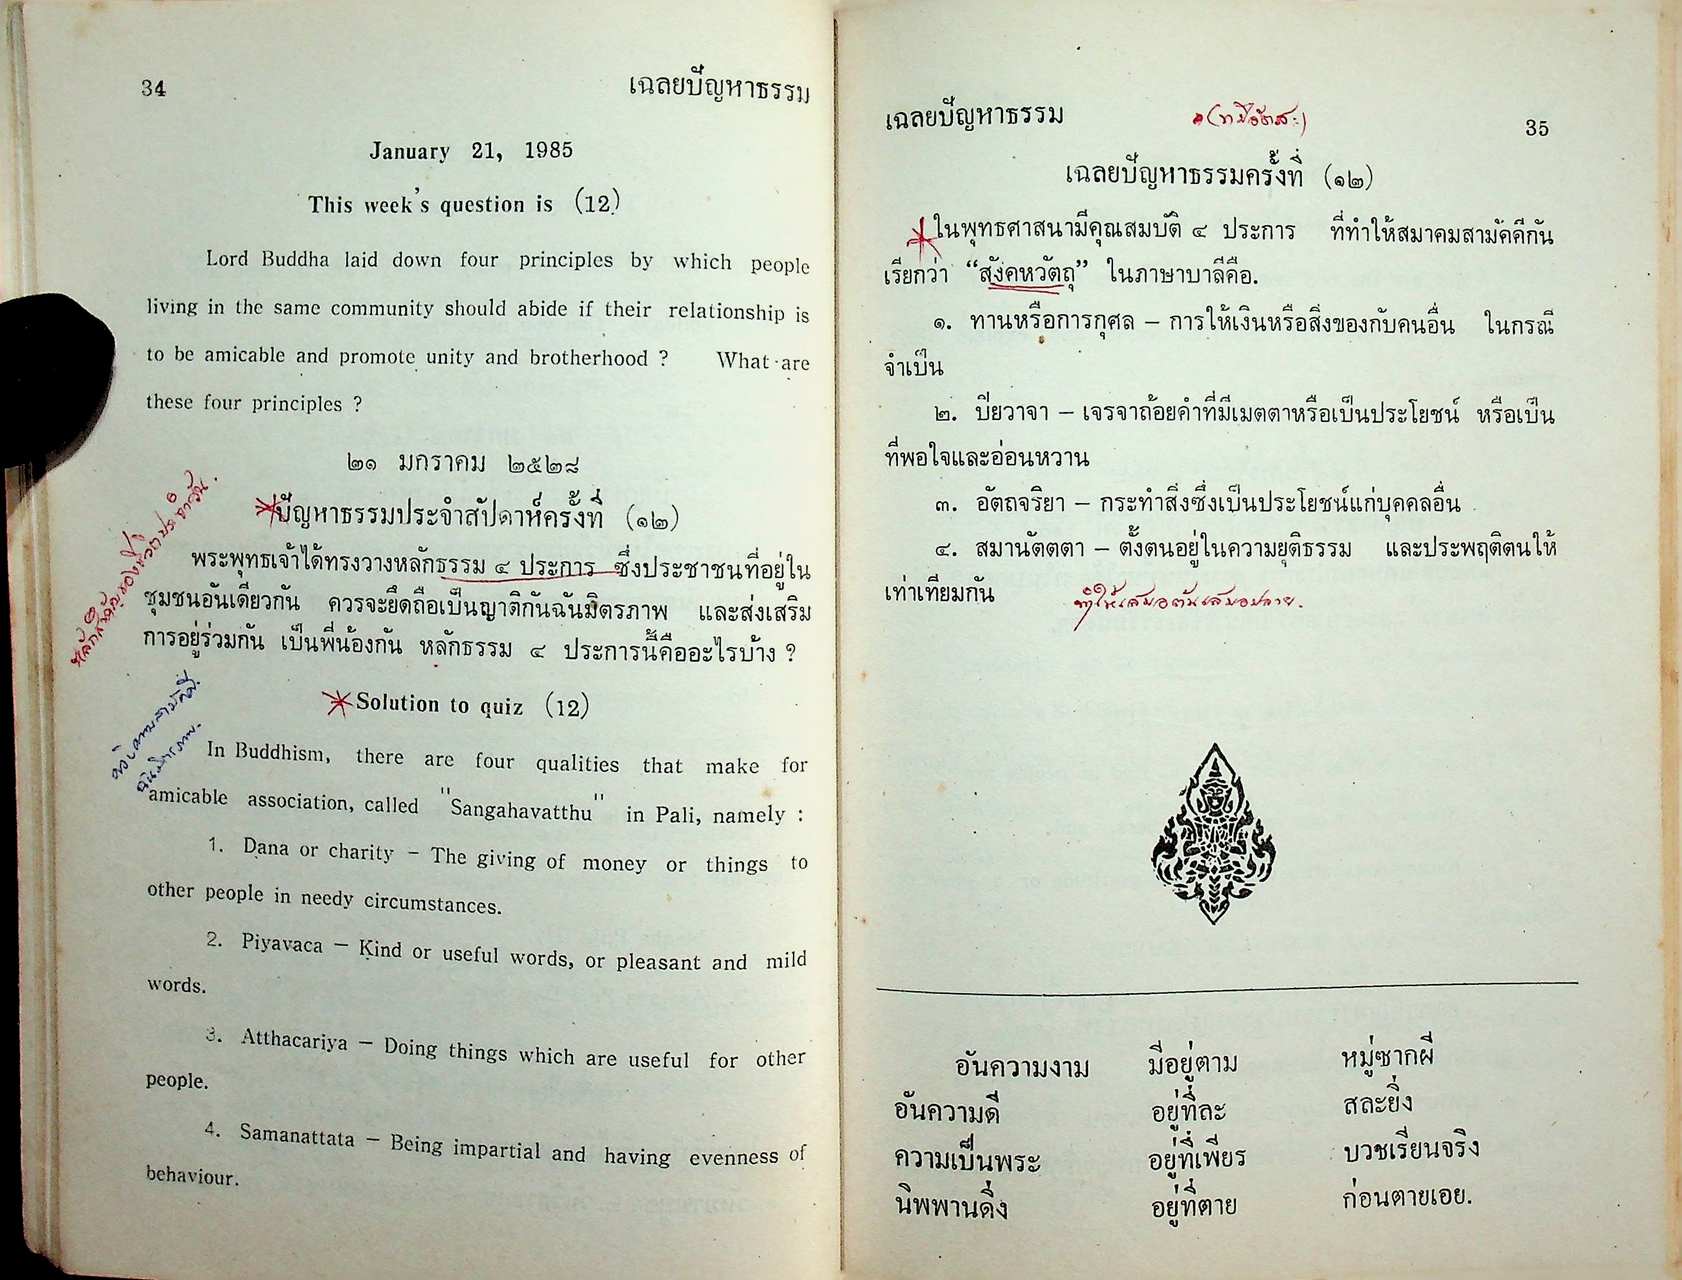 34
เฉลยปัญหาธรรม
January 21, 1985
This week's question is (12)
Lord Buddha laid down four principles by which people
living in the same community should abide if their relationship is
to be amicable and promote unity and brotherhood ? What are
these four principles ?
๒๑ มกราคม ๒๕๒๘
ปัญหาธรรมประจำสัปดาห์ครั้งที่ (๑๒)
พระพุทธเจ้าได้ทรงวางหลักธรรม ๔ ประการ ซึ่งประชาชนที่อยู่ใน
ชุมชนอันเดียวกัน ควรจะยึดถือเป็นญาติกันฉันมิตรภาพ และส่งเสริม
การอยู่ร่วมกัน เป็นพี่น้องกัน หลักธรรม ๔ ประการนี้คืออะไรบ้าง ?
Solution to quiz (12)
In Buddhism, there are four qualities that make for
amicable association, called "Sangahavatthu" in Pali, namely :
1. Dana or charity – The giving of money or things to
other people in needy circumstances.
2. Piyavaca – Kind or useful words, or pleasant and mild
words.
3. Atthacariya – Doing things which are useful for other
people.
4. Samanattata – Being impartial and having evenness of
behaviour.
เฉลยปัญหาธรรม
35
เฉลยปัญหาธรรมครั้งที่ (๑๒)
ในพุทธศาสนามีคุณสมบัติ ๔ ประการ ที่ทำให้สมาคมสามัคคีกัน
เรียกว่า “สังคหวัตถุ” ในภาษาบาลีคือ.
๑. ทานหรือการกุศล – การให้เงินหรือสิ่งของกับคนอื่น ในกรณี
จำเป็น
๒. ปิยวาจา – เจรจาถ้อยคำที่มีเมตตาหรือเป็นประโยชน์ หรือเป็น
ที่พอใจและอ่อนหวาน
๓. อัตถจริยา – กระทำสิ่งซึ่งเป็นประโยชน์แก่บุคคลอื่น
๔. สมานัตตตา – ตั้งตนอยู่ในความยุติธรรม และประพฤติตนให้
เท่าเทียมกัน
ทำให้เสมอต้นเสมอปลาย.
อันความงาม มีอยู่ตาม หมู่ซากผี
อันความดี อยู่ที่ละ สละยิ่ง
ความเป็นพระ อยู่ที่เพียร บวชเรียนจริง
นิพพานดิ่ง อยู่ที่ตาย ก่อนตายเอย.